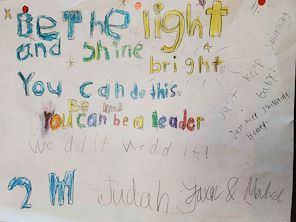 Be The light
and shine
bright
You can do this.
Be kind
You can be a leader
We did it We did it!
just keep swimming
baby!
Just keep swimming
2 M Judah & Mabel